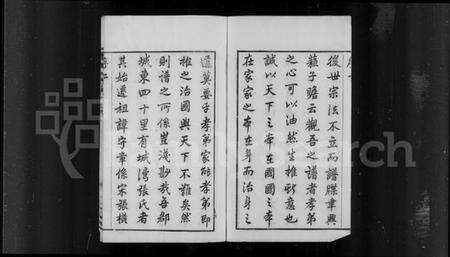 後世宗法不立而譜牒聿興
蘓子瞻云觀吾之譜者孝弟
之心可以油然生推斯意也
誠以天下之本在國國之本
在家家之本在身而治身之
道莫要於孝弟家能孝弟即
推之治國與天下不難矣然
則譜之所係豈淺尠哉吾郡
城東四十里有城灣張氏者
其始遷祖諱守章係宋張横